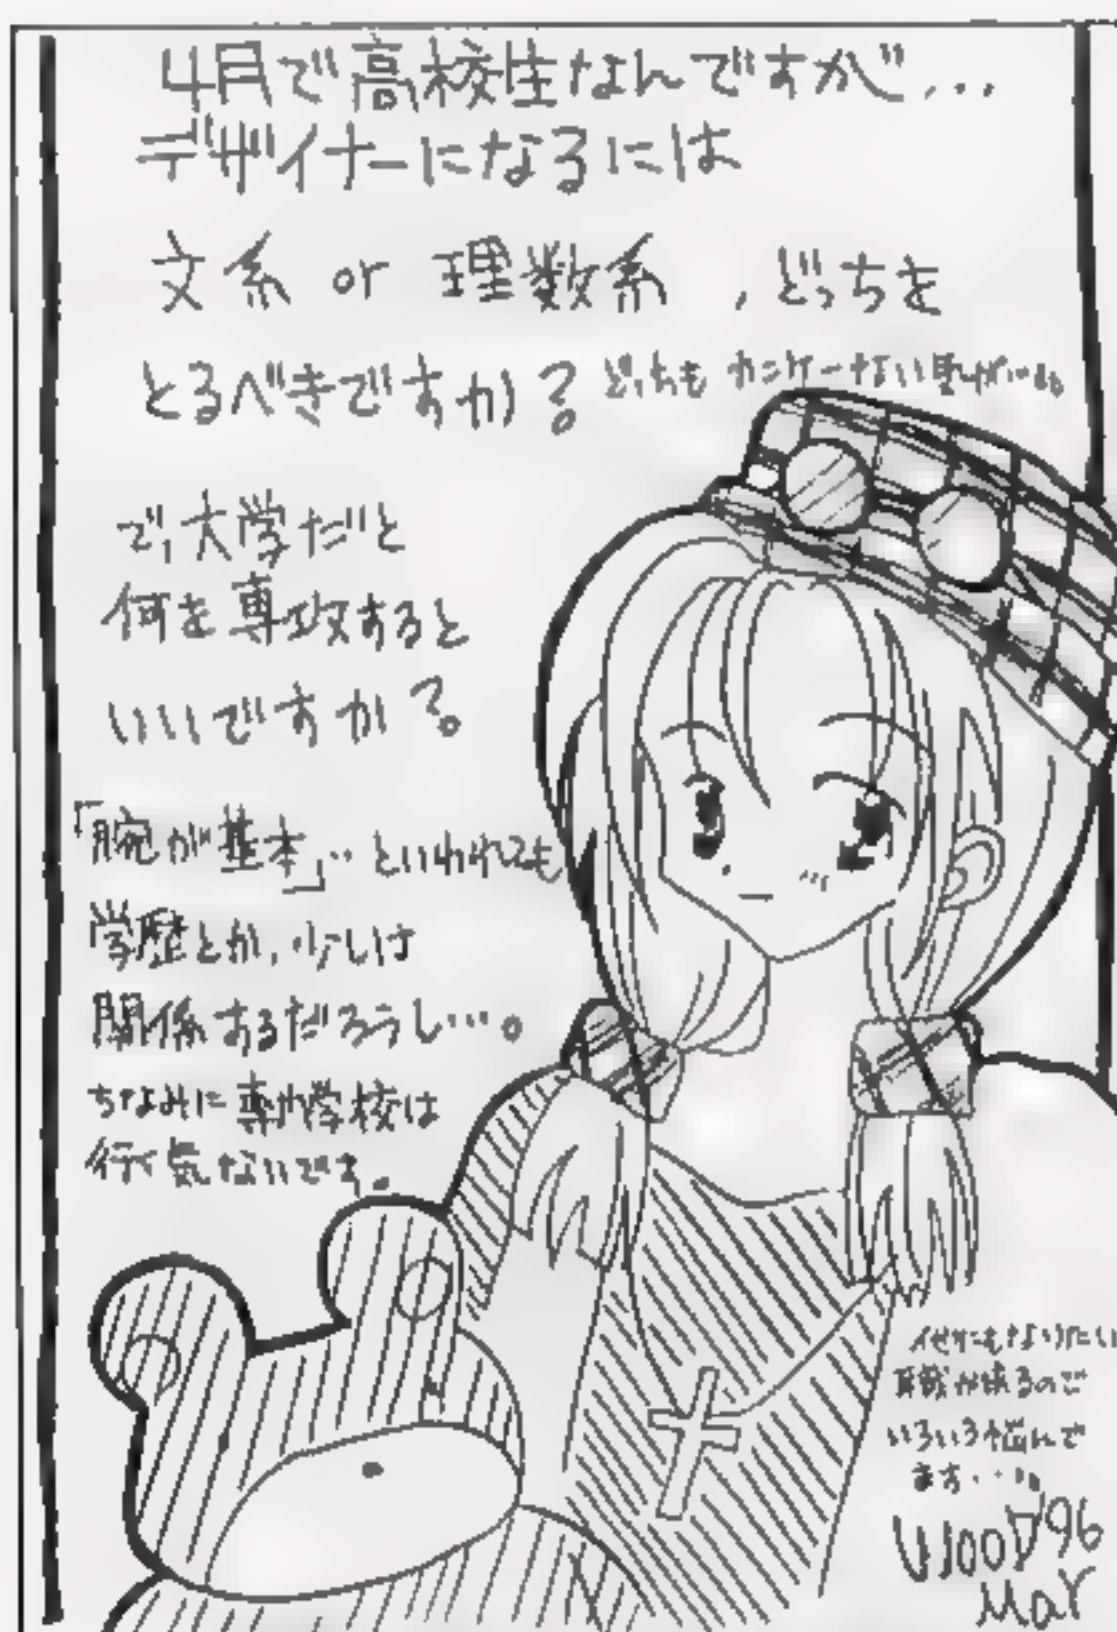 4月で高校生なんですが...
デザイナーになるには
文系 or 理数系 、どっちを
とるべきですか?
どっちも カンケーない気が…。
で、大学だと
何を専攻すると
いいですか?
「腕が基本」‥といわれても
学歴とか、少しは
関係あるだろうし…。
ちなみに専門学校は
行く気ないです。
ほかにもなりたい
職があるので
いろいろ悩んで
ます‥‥。
WOOD '96
Mar